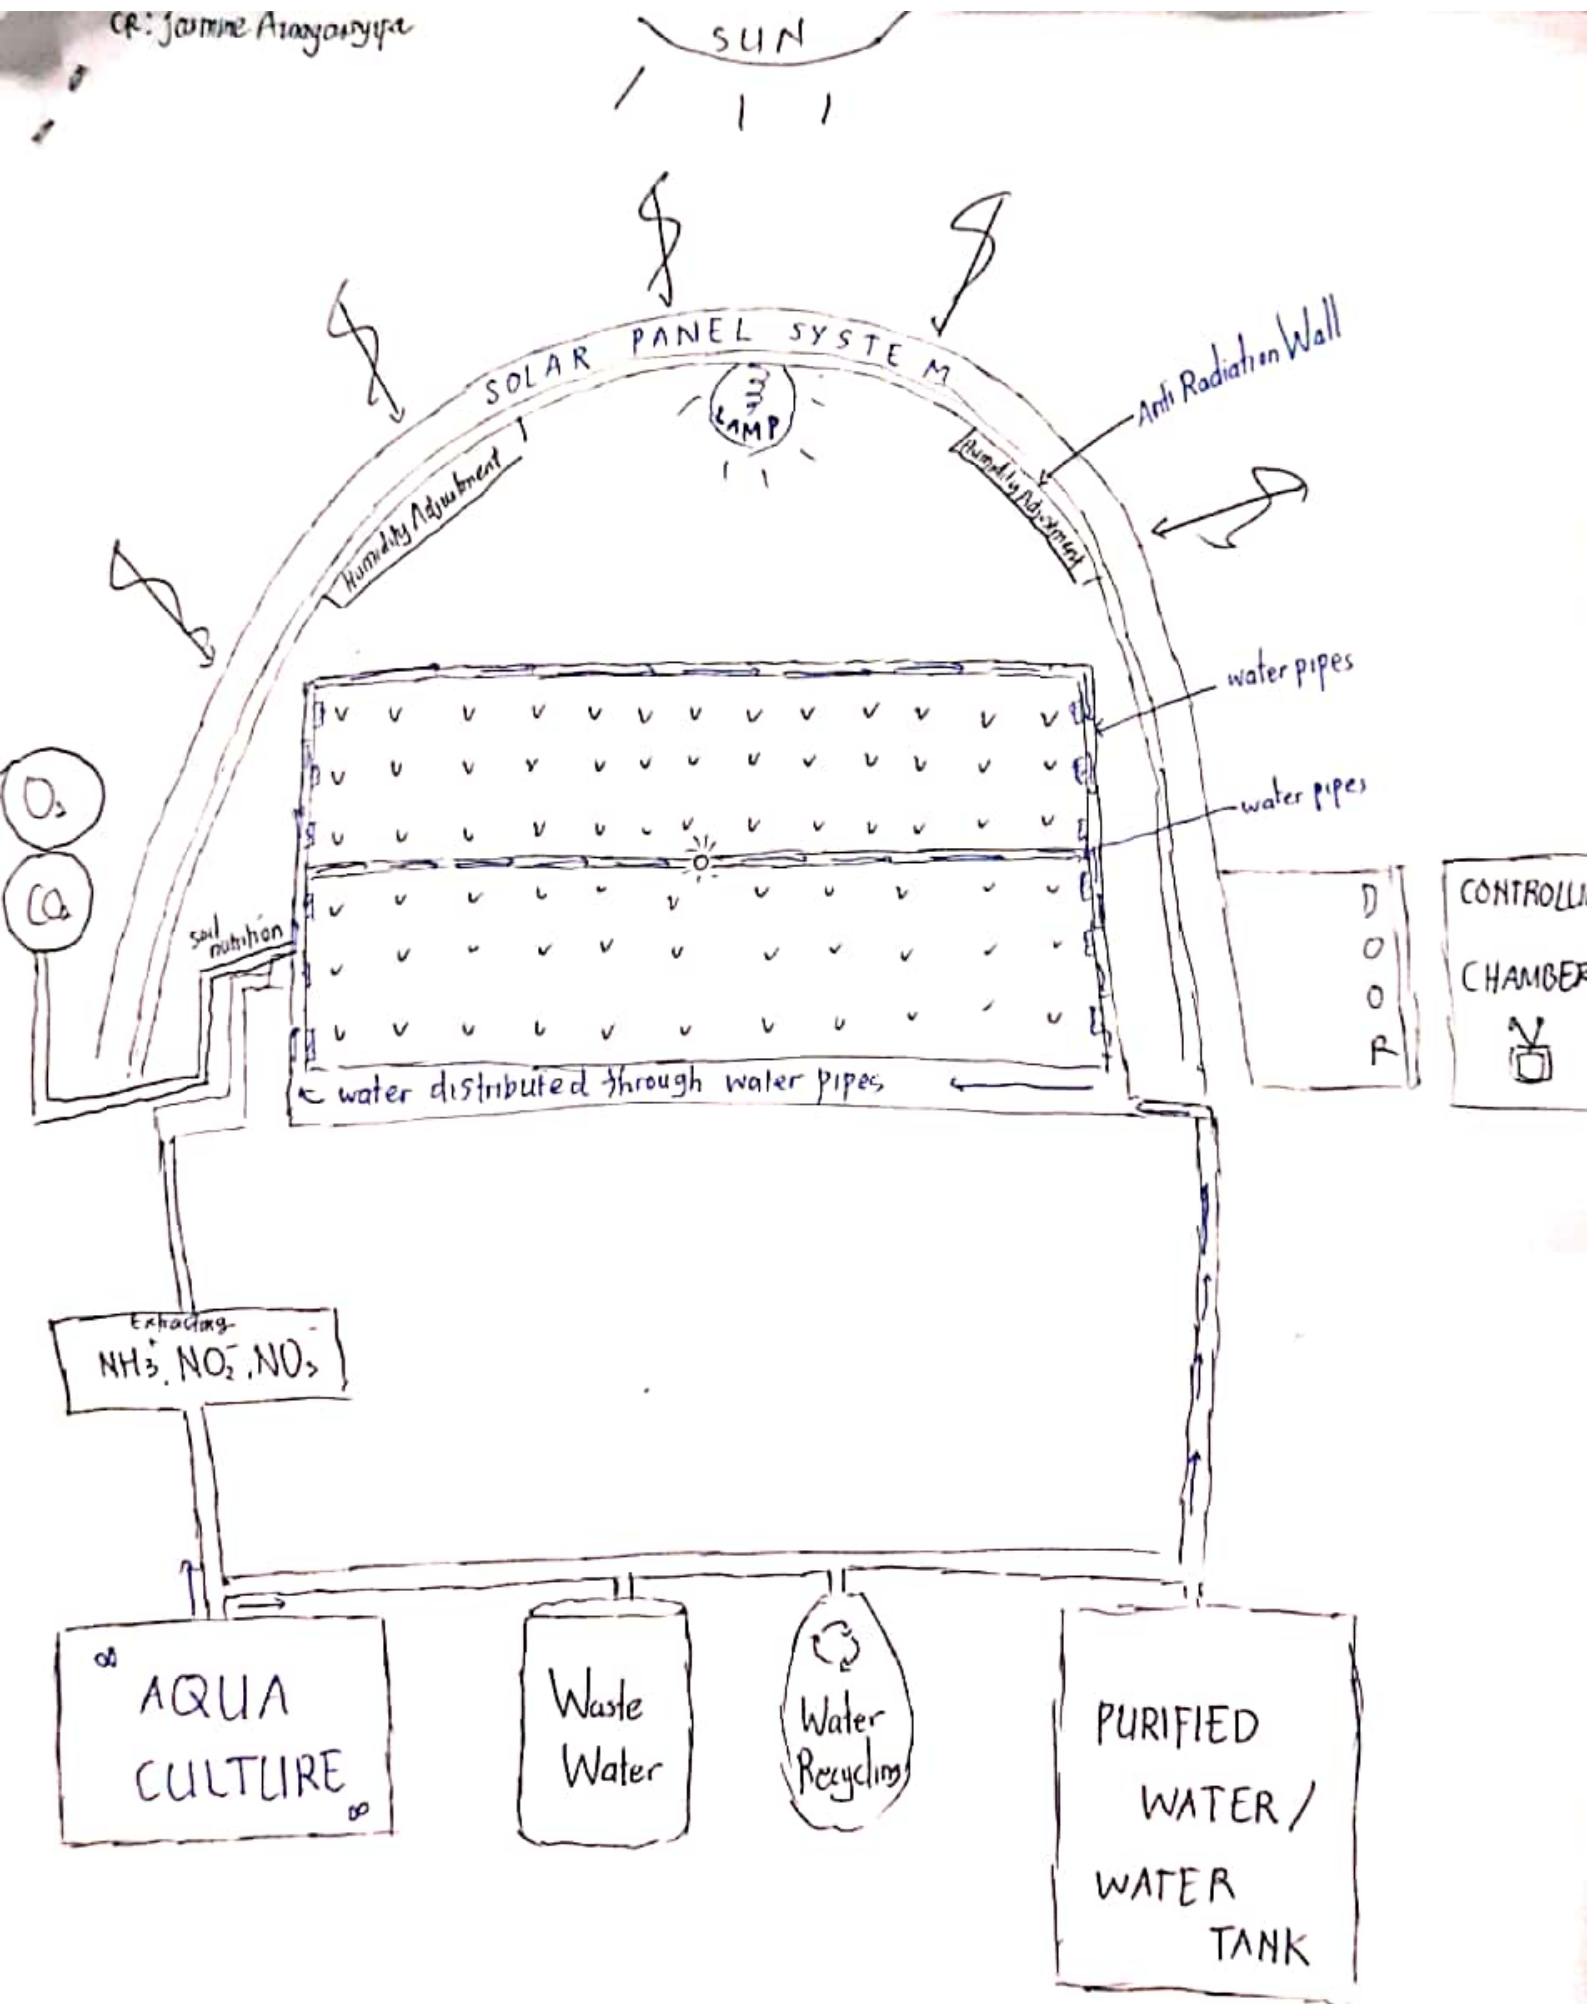 CR: Jasmine
SUN
SOLAR PANEL SYSTEM
LAMP
Anti Radiation Wall
Humidity Adjustment
Humidity Adjustment
water pipes
water pipes
O₂
CO₂
soil
nutrition
DOOR
CONTROLLI
CHAMBER
water distributed through water pipes
Extracting
NH₃⁺, NO₂⁻, NO₃⁻
AQUA
CULTURE
Waste
Water
Water
Recycling
PURIFIED
WATER /
WATER
TANK